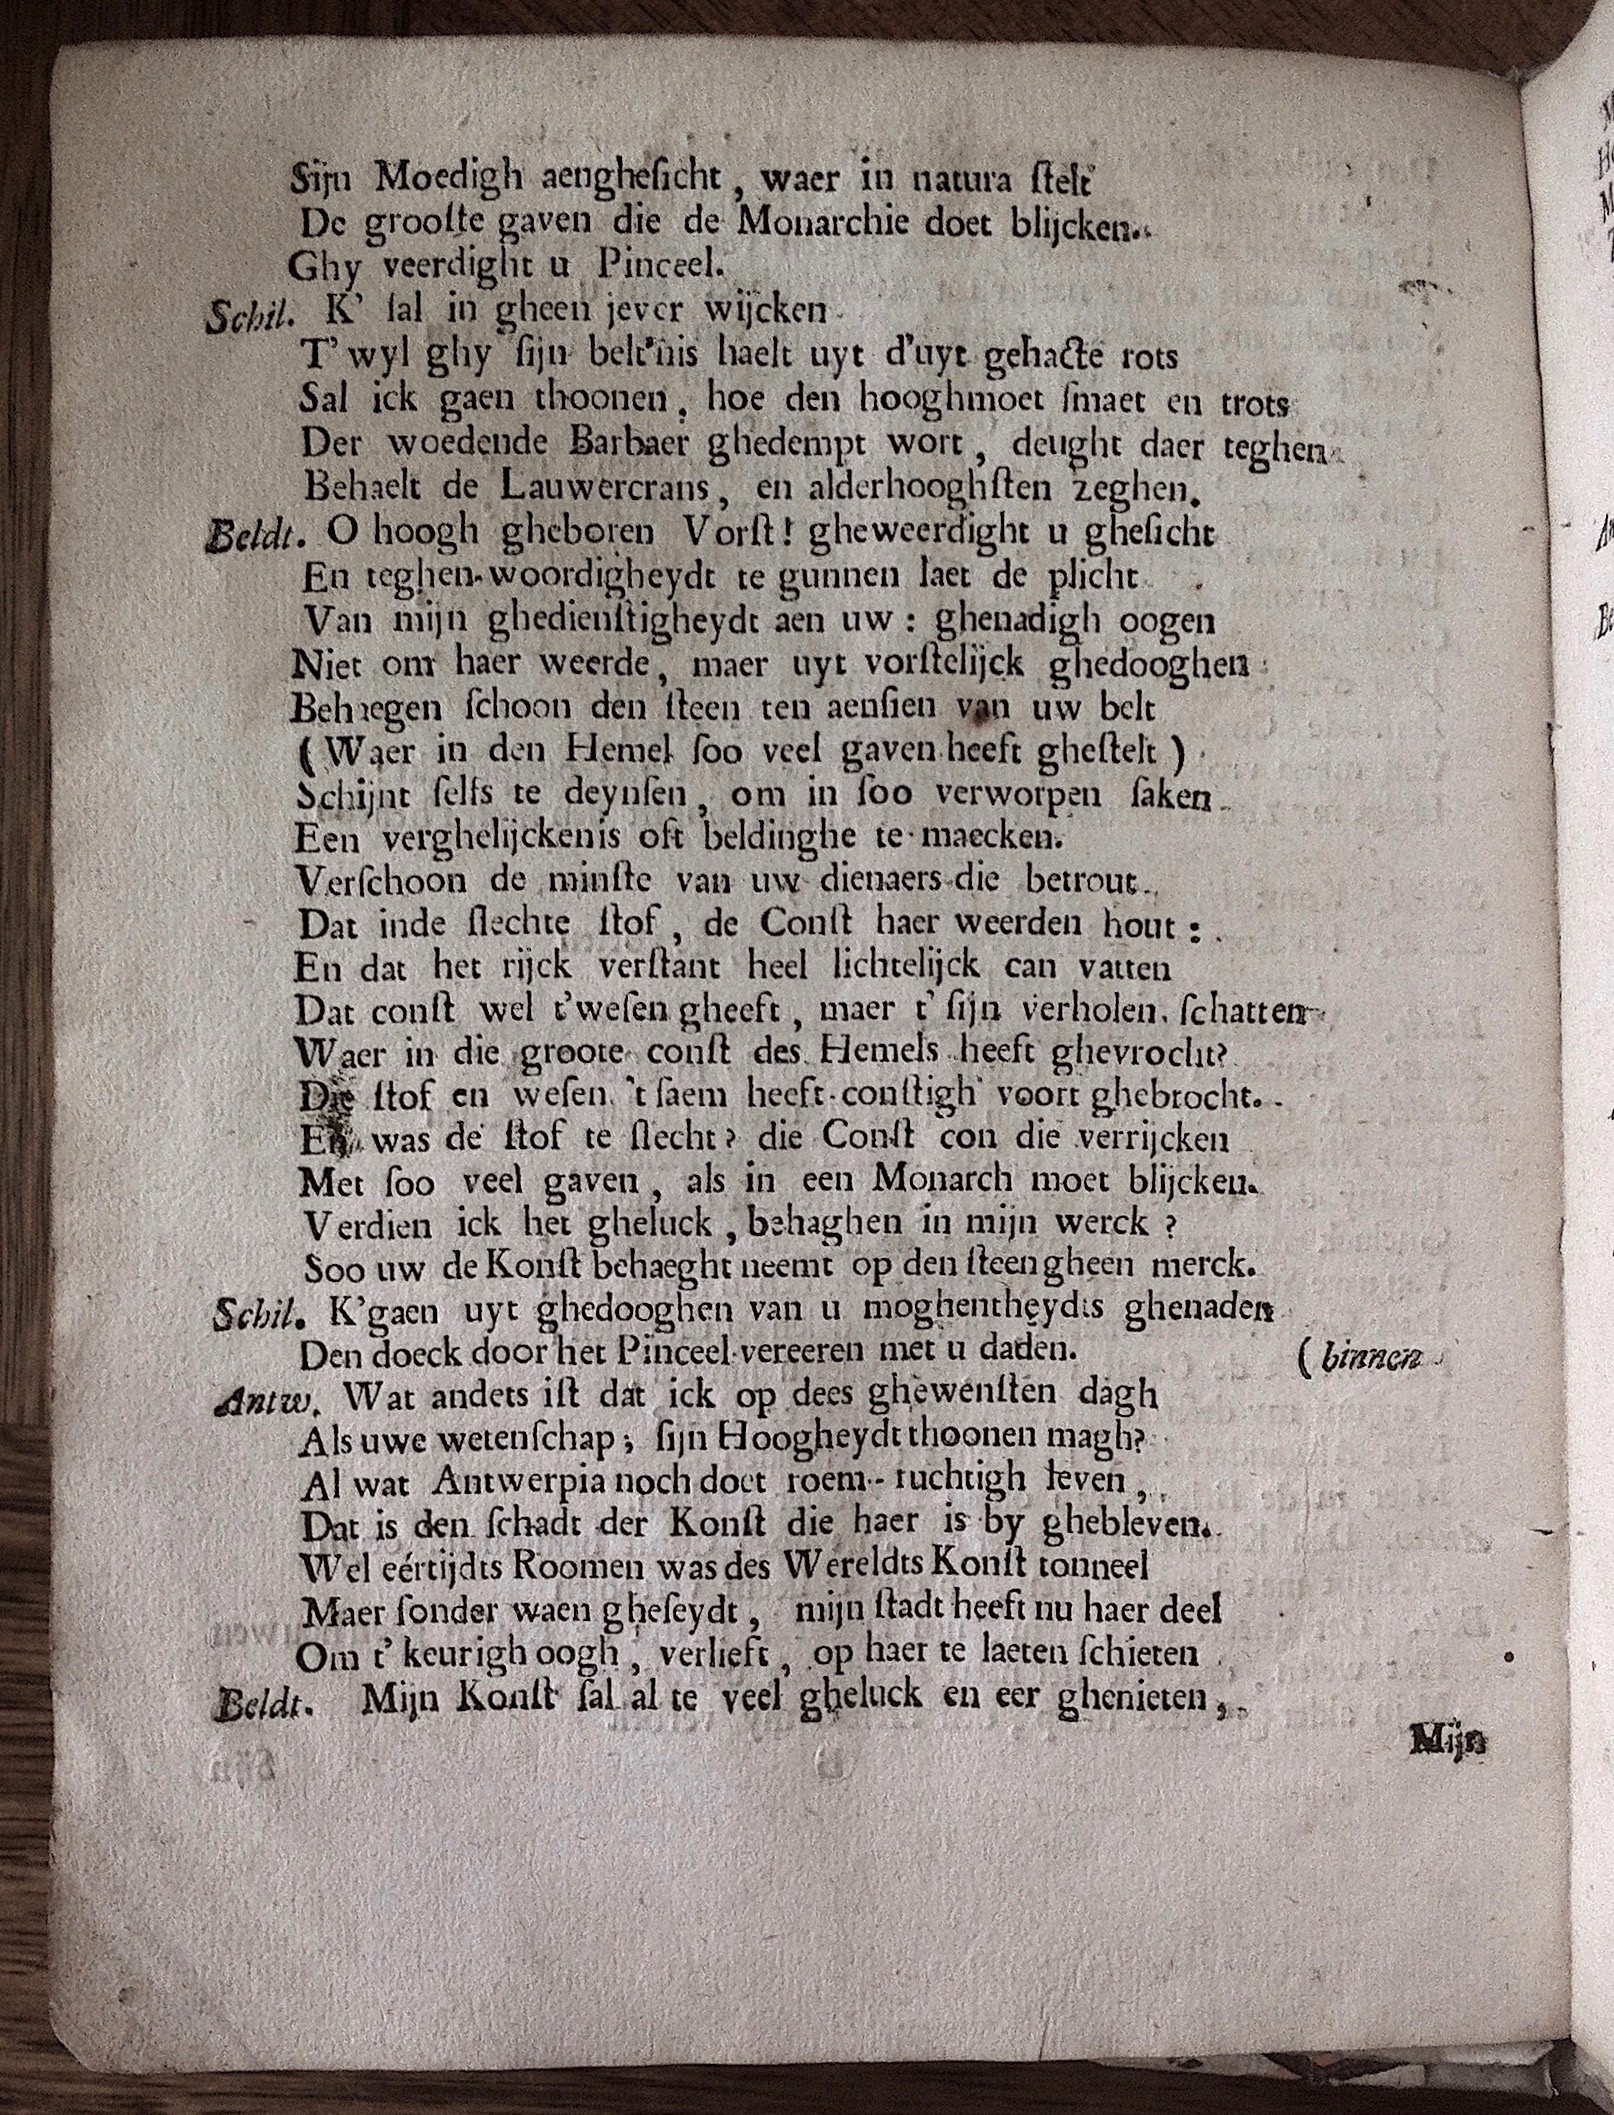 Sijn Moedigh aengheſicht, waer in natura ſtelt
De grooſte gaven die de Monarchie doet blijcken.
Ghy veerdight u Pinceel.
Schil. K' ſal in gheen jever wijcken
T'wyl ghy ſijn belt'nis haelt uyt d'uyt gehacte rots
Sal ick gaen thoonen, hoe den hooghmoet ſmaet en trots
Der woedende Barbaer ghedempt wort, deught daer teghen
Behaelt de Lauwercrans, en alderhooghſten zeghen.
Beldt. O hoogh gheboren Vorſt! gheweerdight u gheſicht
En teghen-woordigheydt te gunnen laet de plicht
Van mijn ghedienſtigheydt aen uw: ghenadigh oogen
Niet om haer weerde, maer uyt vorſtelijck ghedooghen
Behaegen ſchoon den ſteen ten aenſien van uw belt
(Waer in den Hemel ſoo veel gaven heeft gheſtelt)
Schijnt ſelfs te deynſen, om in ſoo verworpen ſaken
Een verghelijckenis oft beldinghe te maecken.
Verſchoon de minſte van uw dienaers die betrout
Dat inde ſlechte ſtof, de Conſt haer weerden hout:
En dat het rijck verſtant heel lichtelijck can vatten
Dat conſt wel t'weſen gheeft, maer t' ſijn verholen ſchatten
Waer in die groote conſt des Hemels heeft ghevrocht?
Die ſtof en weſen 't ſaem heeft conſtigh voort ghebrocht.
En was de ſtof te ſlecht? die Conſt con die verrijcken
Met ſoo veel gaven, als in een Monarch moet blijcken.
Verdien ick het gheluck, behaghen in mijn werck?
Soo uw de Konſt behaeght neemt op den ſteen gheen merck.
Schil. K'gaen uyt ghedooghen van u moghentheydts ghenaden
Den doeck door het Pinceel vereeren met u daden. (binnen
Antw. Wat anders iſt dat ick op dees ghewenſten dagh
Als uwe wetenſchap; ſijn Hoogheydt thoonen magh?
Al wat Antwerpia noch doet roem-ruchtigh leven,
Dat is den ſchadt der Konſt die haer is by ghebleven.
Wel eértijdts Roomen was des Wereldts Konſt tonneel
Maer ſonder waen gheſeydt, mijn ſtadt heeft nu haer deel
Om t' keurigh oogh, verlieft, op haer te laeten ſchieten
Beldt. Mijn Konſt ſal al te veel gheluck en eer ghenieten,
Mijn